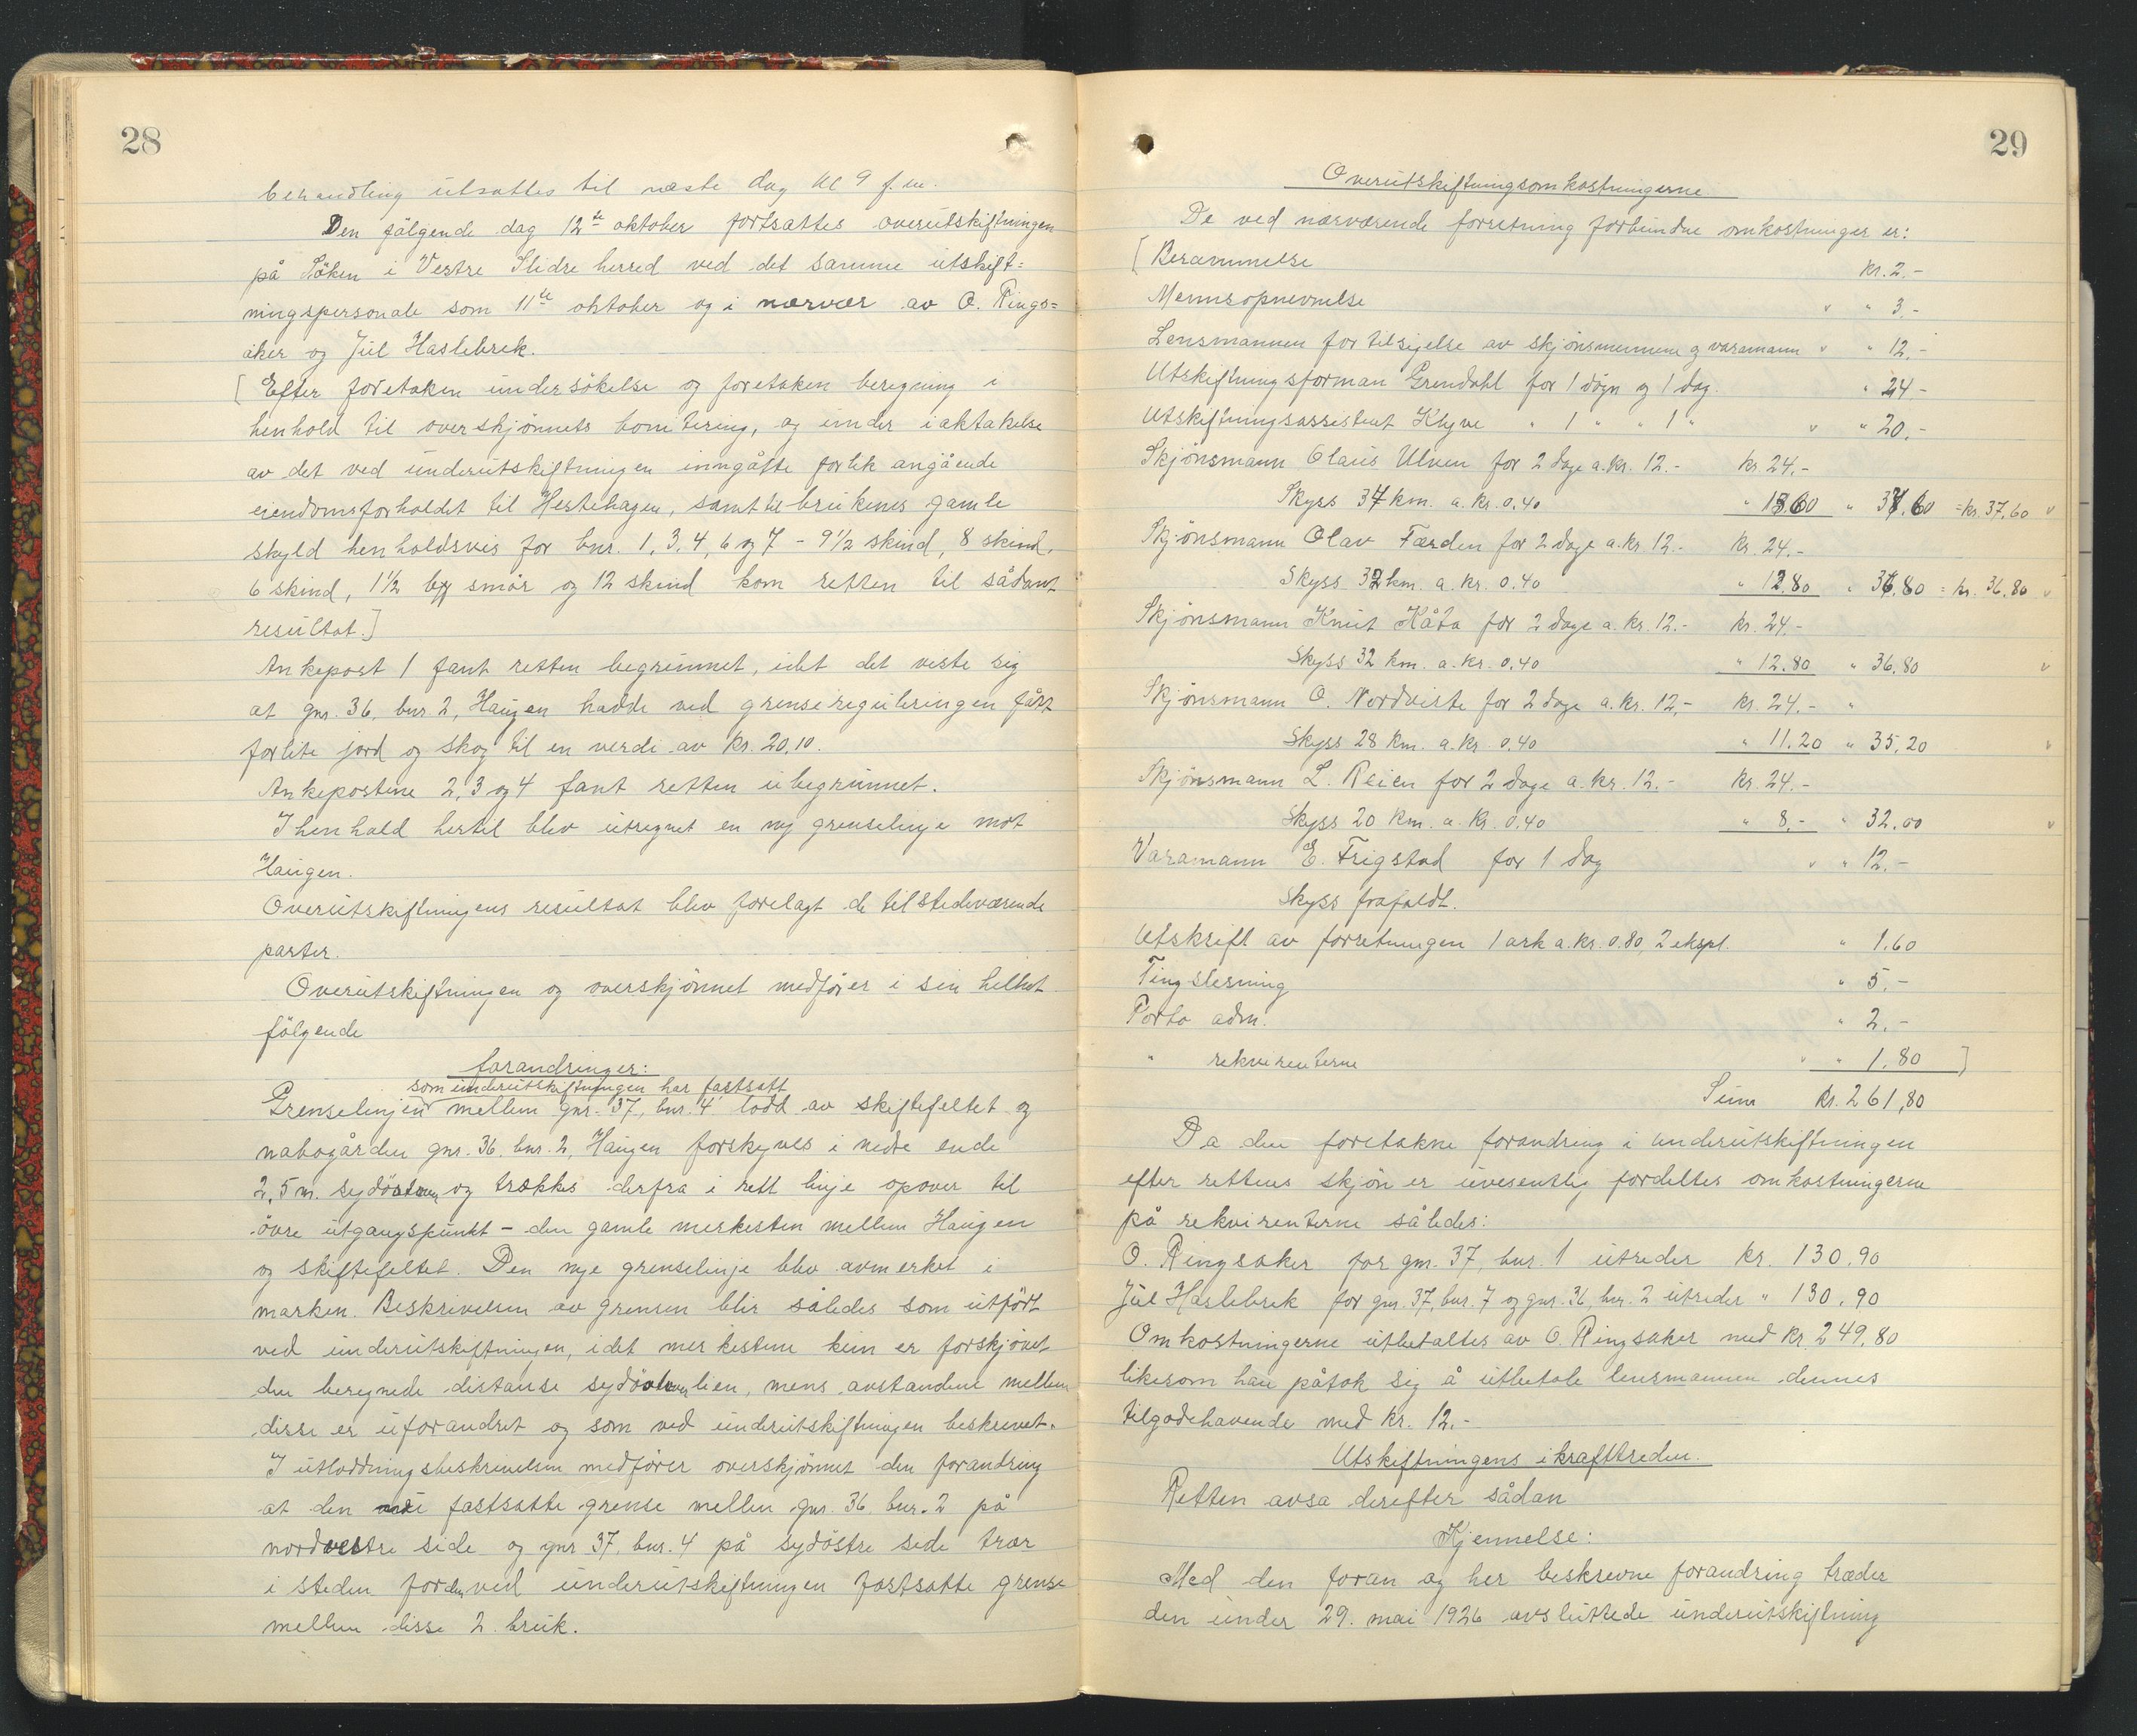 28
behandling utsattes til næste dag kl 9 f.m.
Den følgende dag 12te oktober fortsattes overutskiftningen
på Söken i Vestre Slidre herred ved det samme utskift=
ningspersonale som 11te oktober og i nærvær av O. Rings=
aker og Jul Haslebrek.
[Efter foretaken undersökelse og foretaken beregning i
henhold til overskjönnets bonitering, og under iaktakelse
av det ved underutskiftningen inngåtte forlik angående
eiendomsforholdet til Hestehagen, samt til brukenes gamle
skyld henholdsvis for bnr. 1, 3, 4, 6 og 7 - 9 1/2 skind, 8 skind,
6 skind, 1 1/2 smör og 12 skind kom retten til sådant
resultat.]
Ankepost 1 fant retten begrunnet, idet det viste sig
at gnr. 36, bnr. 2, Haugen hadde ved grensereguleringen fått
forlite jord og skog til en verdi av kr. 20,10.
Ankepostene 2, 3 og 4 fant retten ubegrunnet.
I henhold hertil blev utregnet en ny grenselinje mot
Haugen.
Overutskiftningens resultat blev forelagt de tilstedeværende
parter.
Overutskiftningen og overskjönnet medförer i sin helhet
fölgende
forandringer:
som underutskiftningen har fastsatt
Grenselinjen mellem gnr. 37, bnr. 4 lodd av skiftefeltet og
nabogården gnr. 36, bnr. 2, Haugen forskyves i nedre ende
2,5 m. sydöstover og trækkes derfra i rett linje opover til
övre utgangspunkt - den gamle merkesten mellem Haugen
og skiftefeltet. Den nye grenselinje blev avmerket i
marken. Beskrivelsen av grensen blir således som utfört
ved underutskiftningen, idet merkestene kun er forskjövet
den beregnede distanse sydöstover lien, mens avstandene mellem
disse er uforandret og som ved underutskiftningen beskrevet.
I utloddningsbeskrivelsen medförer overskjönnet den forandring
at den nye fastsatte grense mellem gnr. 36, bnr. 2 på
nordvestre side og gnr 37, bnr. 4 på sydöstre side trær
i steden for den ved underutskiftningen fastsatte grense
mellem disse 2 bruk.
29
Overutskiftningsomkostningerne
De ved nærværende forretning forbundne omkostninger er:
[Berammelse kr. 2.-
Mennsopnevnelse " " 3.-
Lensmannen for tilsigelse av skjönsmennene og varamann " " 12.-
Utskiftningsforman Grendahl for 1 dögn og 1 dag. " 24-
Utskiftningsassistent Klyve " 1 " " 1 " " " 20.-
Skjönsmann Olaus Ulven for 2 dage a. kr. 12.- kr. 24.-
Skyss 34 km. a. kr. 0.40 " 13.60 " 37.60 = kr. 37,60
Skjönsmann Olav Færden for 2 dage a. kr. 12.- kr. 24.-
Skyss 32 km. a. kr. 0.40 " 12.80 " 36.80 = kr. 36,80
Skjönsmann Knut Kåta for 2 dage a. kr. 12.- kr. 24.-
Skyss 32 km. a. kr. 0.40 " 12.80 " 36.80
Skjönsmann O. Nordviste for 2 dage a. kr. 12,- kr. 24.- "
Skyss 28 km. a. kr. 0.40 " 11.20 " 35,20
Skjönsmann L. Reien for 2 dage a. kr. 12.- kr. 24.-
Skyss 20 km. a. kr. 0.40 " 8.- " 32.00
Varamann E. Frigstad for 1 dag " " 12.-
Skyss frafaldt.
Utskrift av forretningen 1 ark a. kr. 0.80, 2 ekspl. " 1.60
Tingslesning " 5.-
Porto adm. " 2.-
" rekvirenterne " " 1.80 ]
Sum kr. 261,80
Da den foretakne forandring i underutskiftningen
efter rettens skjön er uvesentlig fordeltes omkostningerne
på rekvirenterne således:
O. Ringsaker for gnr. 37, bnr. 1 utreder kr. 130.90
Jul Haslebrek for gnr. 37, bnr. 7 og gnr. 36, bnr. 2 utreder " 130.90
Omkostningerne utbetaltes av O. Ringsaker med kr. 249,80
likesom han påtok sig å utbetale lensmannen dennes
tilgodehavende med kr. 12.-
Utskiftningens ikrafttreden.
Retten avsa derefter sådan
Kjennelse:
Med den foran og her beskrevne forandring træder
den under 29. mai 1926 avsluttede underutskiftning